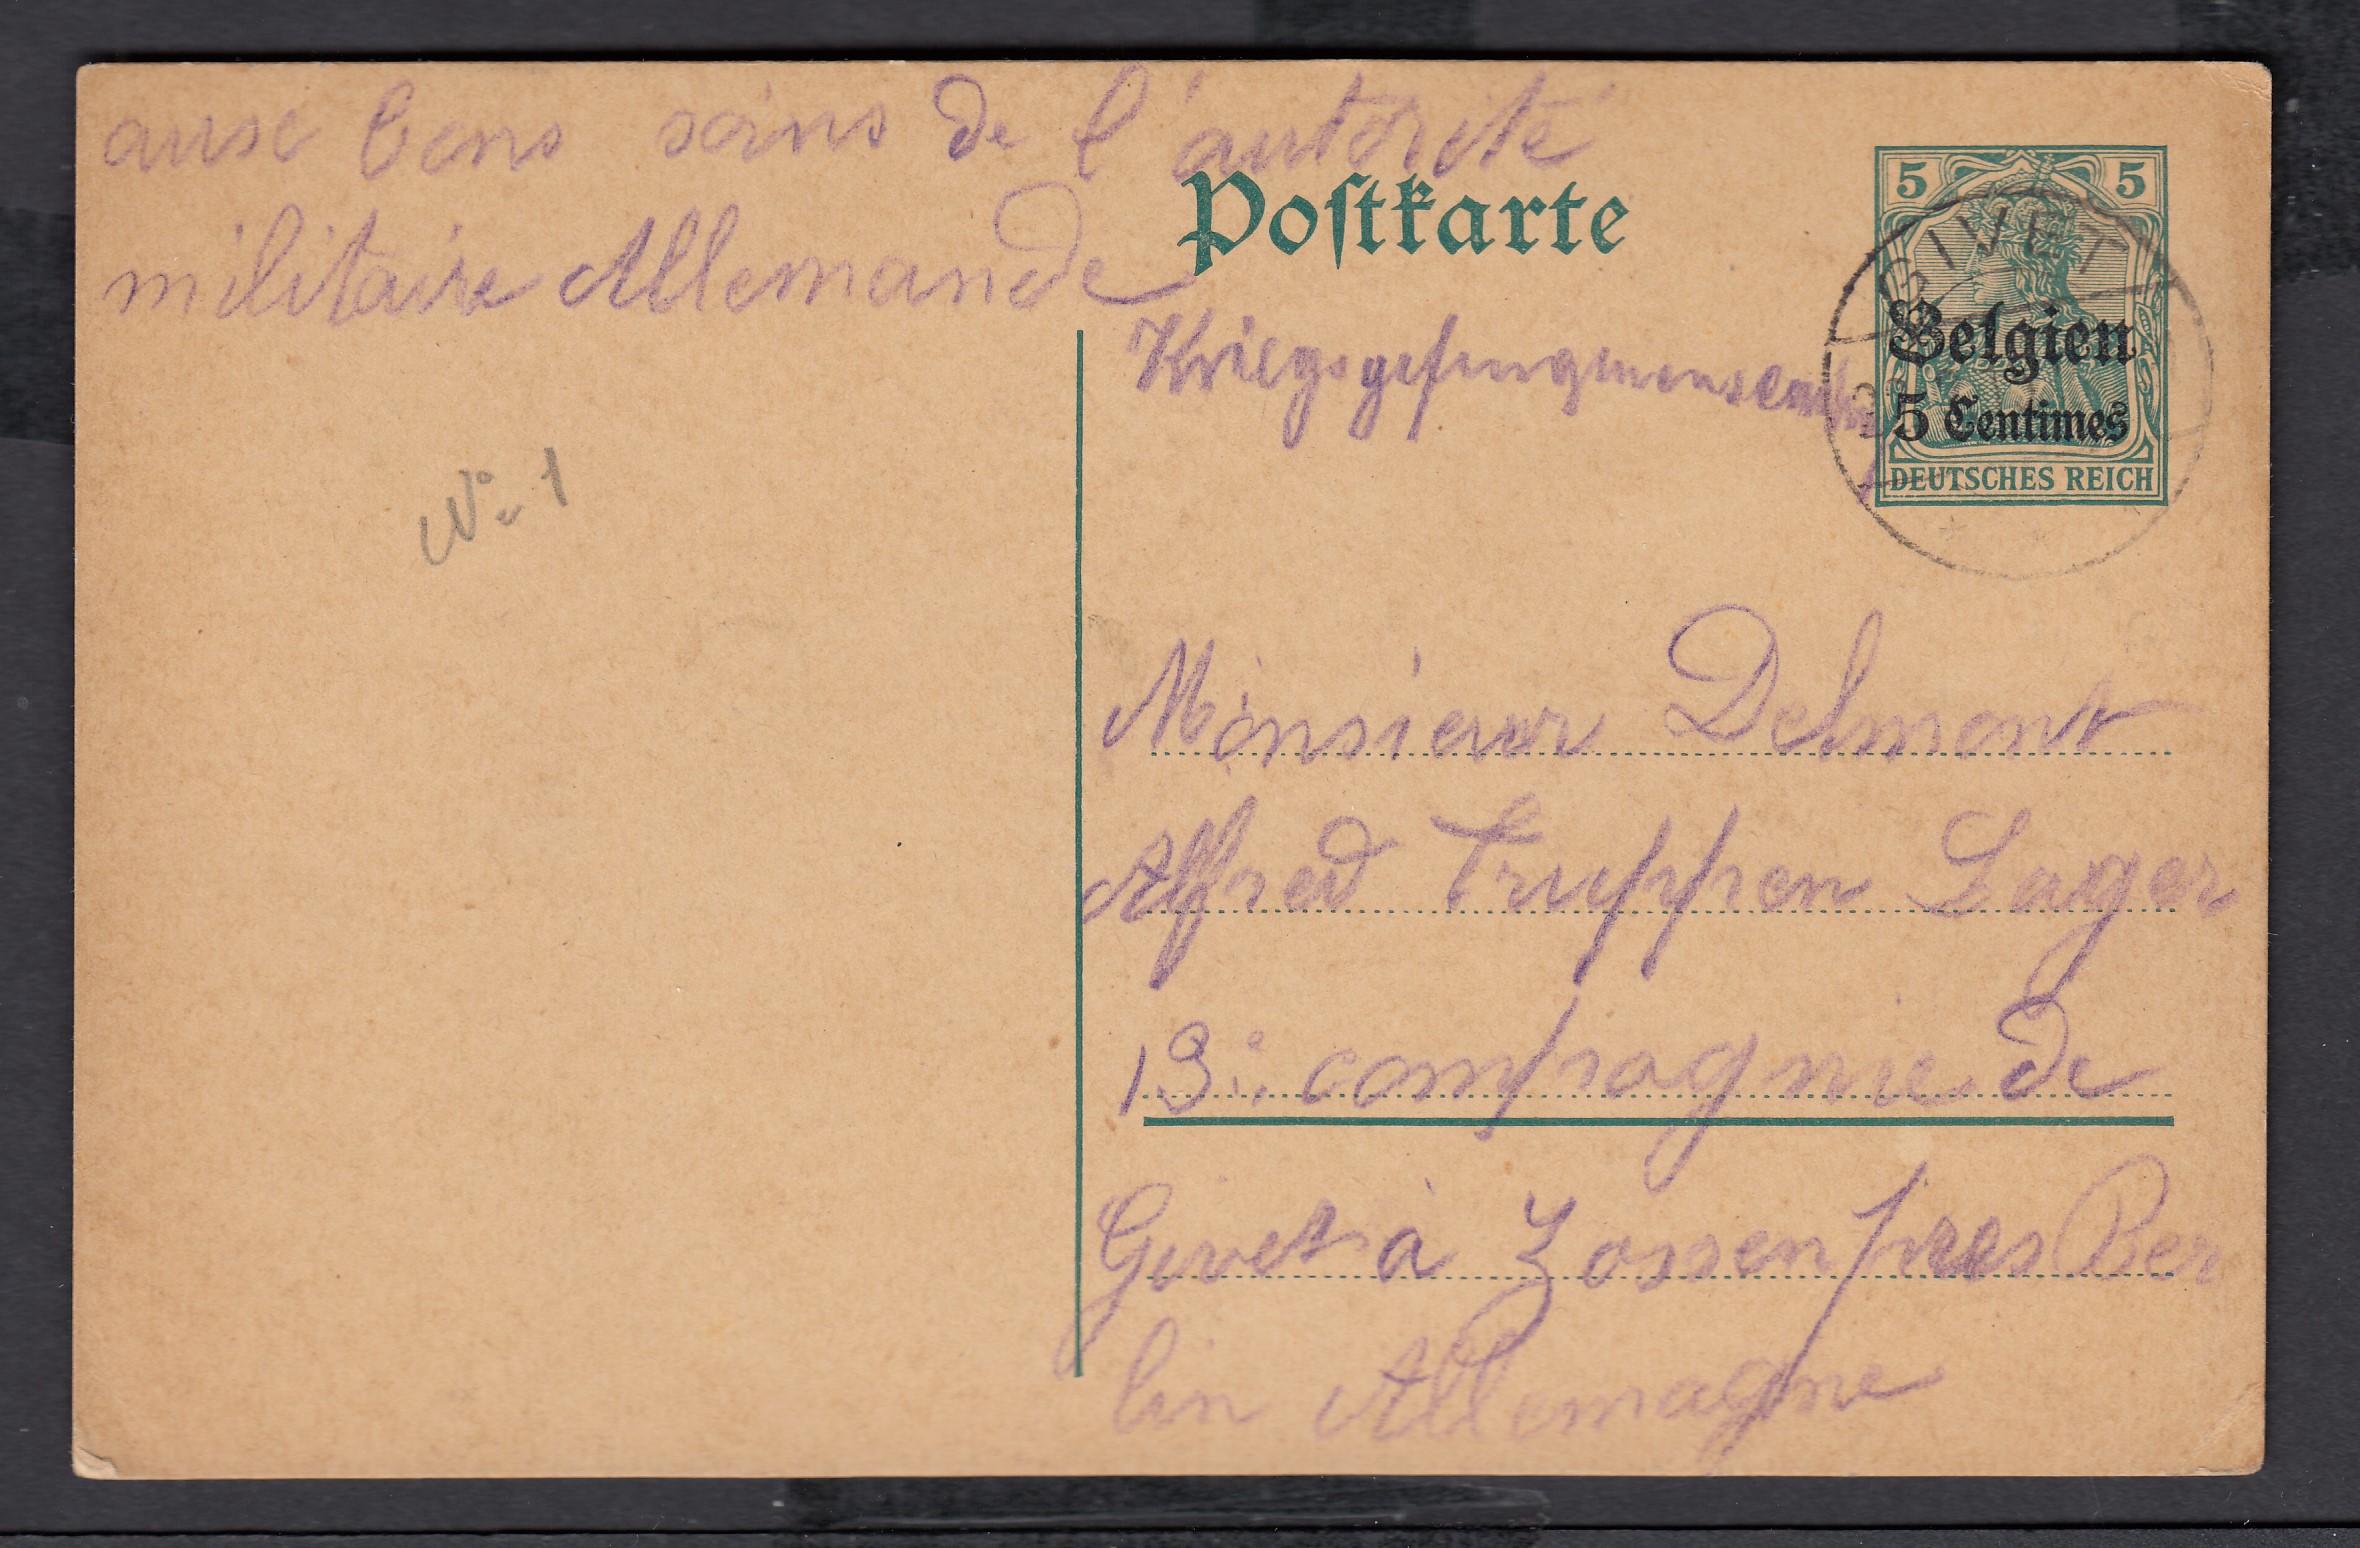 aux bons soins de l'autorité
militaire Allemande
Postkarte
5 5
GIVET
Belgien
5 Centimes
DEUTSCHES REICH
N° 1
Monsieur Delmont
Alfred Truppen Lager
13e compagnie de
Givet à Zossen pres Ber
lin Allemagne